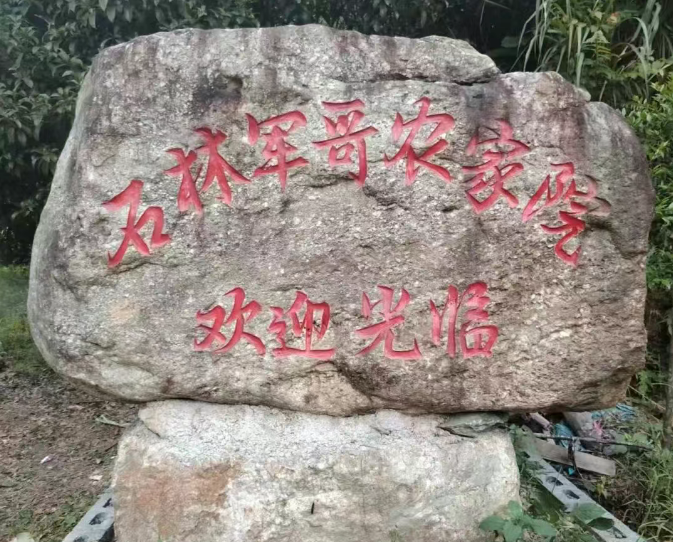 石林军哥农家
欢迎光临